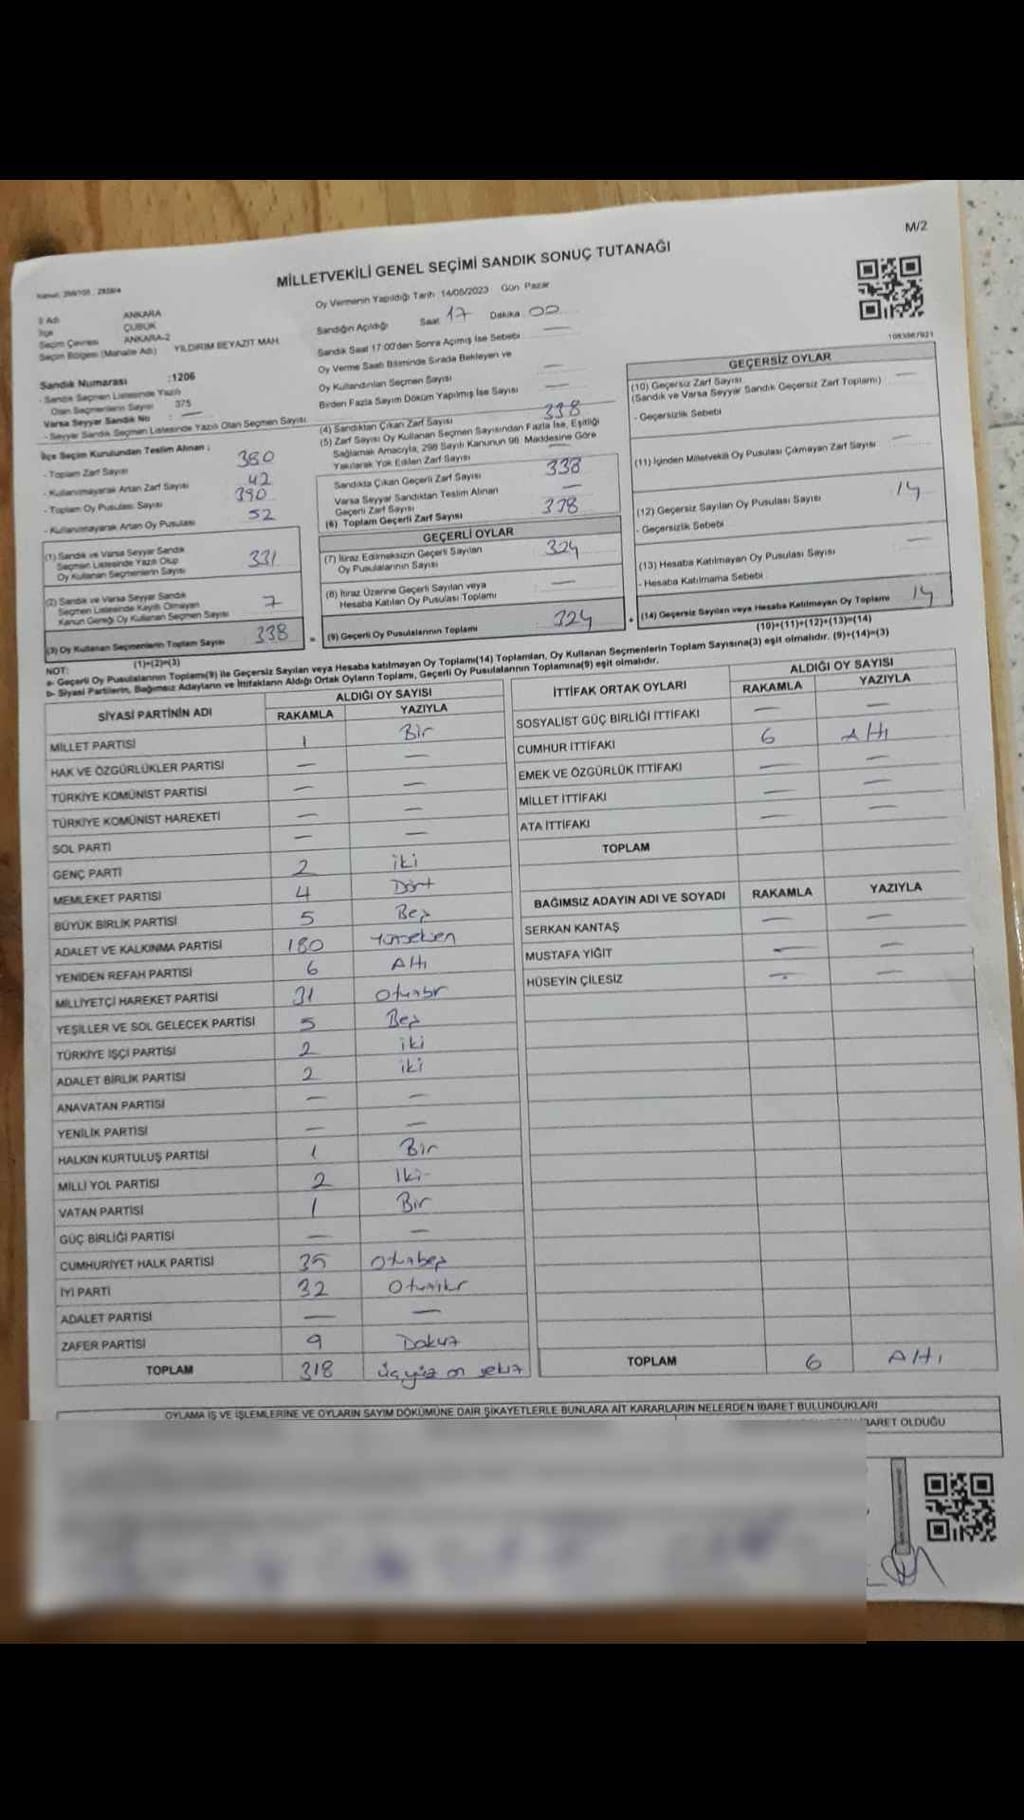 M/2
MİLLETVEKİLİ GENEL SEÇİMİ SANDIK SONUÇ TUTANAĞI
İl Adı ANKARA
İlçe ÇUBUK
Seçim Çevresi ANKARA-2
Seçim Bölgesi (Mahalle Adı) YILDIRIM BEYAZIT MAH.
Sandık Numarası :1206
- Sandık Seçmen Listesinde Yazılı
Olan Seçmenlerin Sayısı 375
Varsa Seyyar Sandık No : —
- Seyyar Sandık Seçmen Listesinde Yazılı Olan Seçmen Sayısı
İlçe Seçim Kurulundan Teslim Alınan :
- Toplam Zarf Sayısı 380
- Kullanılmayarak Artan Zarf Sayısı 42
- Toplam Oy Pusulası Sayısı 390
- Kullanılmayarak Artan Oy Pusulası 52
(1) Sandık ve Varsa Seyyar Sandık
Seçmen Listesinde Yazılı Olup
Oy Kullanan Seçmenlerin Sayısı 331
(2) Sandık ve Varsa Seyyar Sandık
Seçmen Listesinde Kayıtlı Olmayan
Kanun Gereği Oy Kullanan Seçmen Sayısı 7
(3) Oy Kullanan Seçmenlerin Toplam Sayısı 338
(1)+(2)=(3)
Oy Vermenin Yapıldığı Tarih 14/05/2023 Gün Pazar
Sandığın Açıldığı Saat 17 Dakika 00
Sandık Saat 17:00'den Sonra Açılmış İse Sebebi —
Oy Verme Saati Bitiminde Sırada Bekleyen ve
Oy Kullandırılan Seçmen Sayısı —
Birden Fazla Sayım Döküm Yapılmış İse Sayısı —
(4) Sandıktan Çıkan Zarf Sayısı 338
(5) Zarf Sayısı Oy Kullanan Seçmen Sayısından Fazla İse, Eşitliği
Sağlamak Amacıyla, 298 Sayılı Kanunun 98. Maddesine Göre
Yakılarak Yok Edilen Zarf Sayısı
Sandıkta Çıkan Geçerli Zarf Sayısı 338
Varsa Seyyar Sandıktan Teslim Alınan
Geçerli Zarf Sayısı —
(6) Toplam Geçerli Zarf Sayısı 338
GEÇERLİ OYLAR
(7) İtiraz Edilmeksizin Geçerli Sayılan
Oy Pusulalarının Sayısı 324
(8) İtiraz Üzerine Geçerli Sayılan veya
Hesaba Katılan Oy Pusulası Toplamı —
(9) Geçerli Oy Pusulalarının Toplamı 324
GEÇERSİZ OYLAR
(10) Geçersiz Zarf Sayısı —
(Sandık ve Varsa Seyyar Sandık Geçersiz Zarf Toplamı)
- Geçersizlik Sebebi
(11) İçinden Milletvekili Oy Pusulası Çıkmayan Zarf Sayısı —
(12) Geçersiz Sayılan Oy Pusulası Sayısı 14
- Geçersizlik Sebebi
(13) Hesaba Katılmayan Oy Pusulası Sayısı —
- Hesaba Katılmama Sebebi
(14) Geçersiz Sayılan veya Hesaba Katılmayan Oy Toplamı 14
(10)+(11)+(12)+(13)=(14)
NOT:
a- Geçerli Oy Pusulalarının Toplamı(9) ile Geçersiz Sayılan veya Hesaba katılmayan Oy Toplamı(14) Toplamları, Oy Kullanan Seçmenlerin Toplam Sayısına(3) eşit olmalıdır. (9)+(14)=(3)
b- Siyasi Partilerin, Bağımsız Adayların ve İttifakların Aldığı Ortak Oyların Toplamı, Geçerli Oy Pusulalarının Toplamına(9) eşit olmalıdır.
SİYASİ PARTİNİN ADI ALDIĞI OY SAYISI
RAKAMLA YAZIYLA
MİLLET PARTİSİ 1 Bir
HAK VE ÖZGÜRLÜKLER PARTİSİ — —
TÜRKİYE KOMÜNİST PARTİSİ — —
TÜRKİYE KOMÜNİST HAREKETİ — —
SOL PARTİ — —
GENÇ PARTİ 2 iki
MEMLEKET PARTİSİ 4 Dört
BÜYÜK BİRLİK PARTİSİ 5 Beş
ADALET VE KALKINMA PARTİSİ 180 Yüzseksen
YENİDEN REFAH PARTİSİ 6 Altı
MİLLİYETÇİ HAREKET PARTİSİ 31 Otuzbir
YEŞİLLER VE SOL GELECEK PARTİSİ 5 Beş
TÜRKİYE İŞÇİ PARTİSİ 2 iki
ADALET BİRLİK PARTİSİ 2 iki
ANAVATAN PARTİSİ — —
YENİLİK PARTİSİ — —
HALKIN KURTULUŞ PARTİSİ 1 Bir
MİLLİ YOL PARTİSİ 2 İki
VATAN PARTİSİ 1 Bir
GÜÇ BİRLİĞİ PARTİSİ — —
CUMHURİYET HALK PARTİSİ 35 Otuzbeş
İYİ PARTİ 32 Otuziki
ADALET PARTİSİ — —
ZAFER PARTİSİ 9 Dokuz
TOPLAM 318 üçyüz on sekiz
İTTİFAK ORTAK OYLARI ALDIĞI OY SAYISI
RAKAMLA YAZIYLA
SOSYALİST GÜÇ BİRLİĞİ İTTİFAKI — —
CUMHUR İTTİFAKI 6 Altı
EMEK VE ÖZGÜRLÜK İTTİFAKI — —
MİLLET İTTİFAKI — —
ATA İTTİFAKI — —
TOPLAM
BAĞIMSIZ ADAYIN ADI VE SOYADI RAKAMLA YAZIYLA
SERKAN KANTAŞ — —
MUSTAFA YİĞİT — —
HÜSEYİN ÇİLESİZ — —
TOPLAM 6 Altı
OYLAMA İŞ VE İŞLEMLERİNE VE OYLARIN SAYIM DÖKÜMÜNE DAİR ŞİKAYETLERLE BUNLARA AİT KARARLARIN NELERDEN İBARET BULUNDUKLARI
BARET OLDUĞU